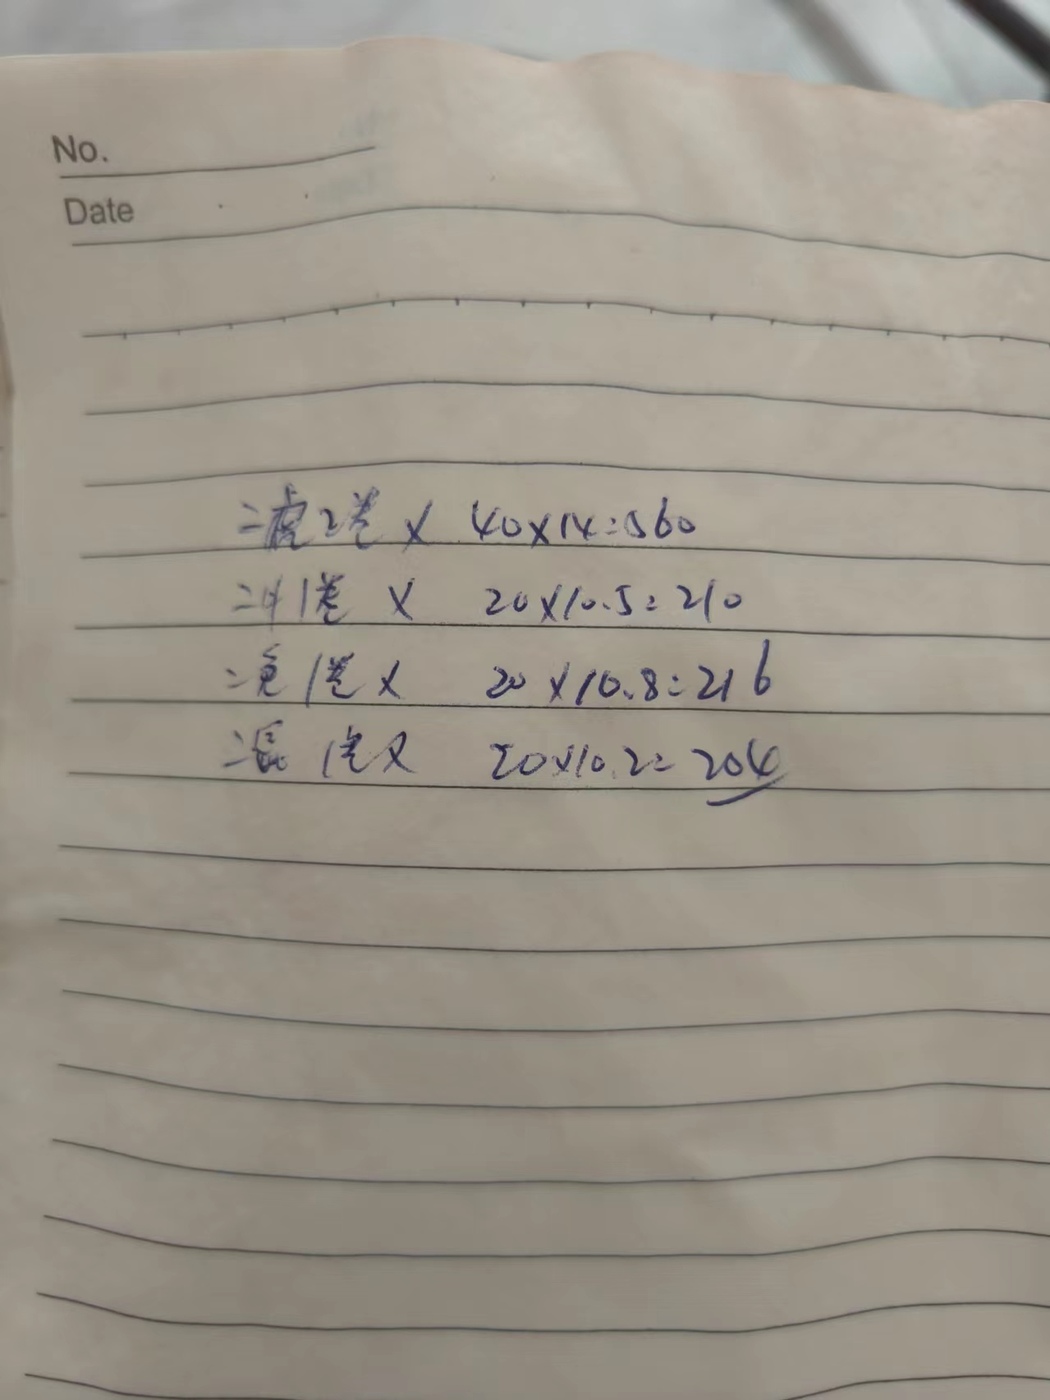 No.
Date
二虎2卷 × 40×14=560
二牛1卷 × 20×10.5=210
二兔1卷 × 20×10.8=216
二 1卷× 20×10.2=204